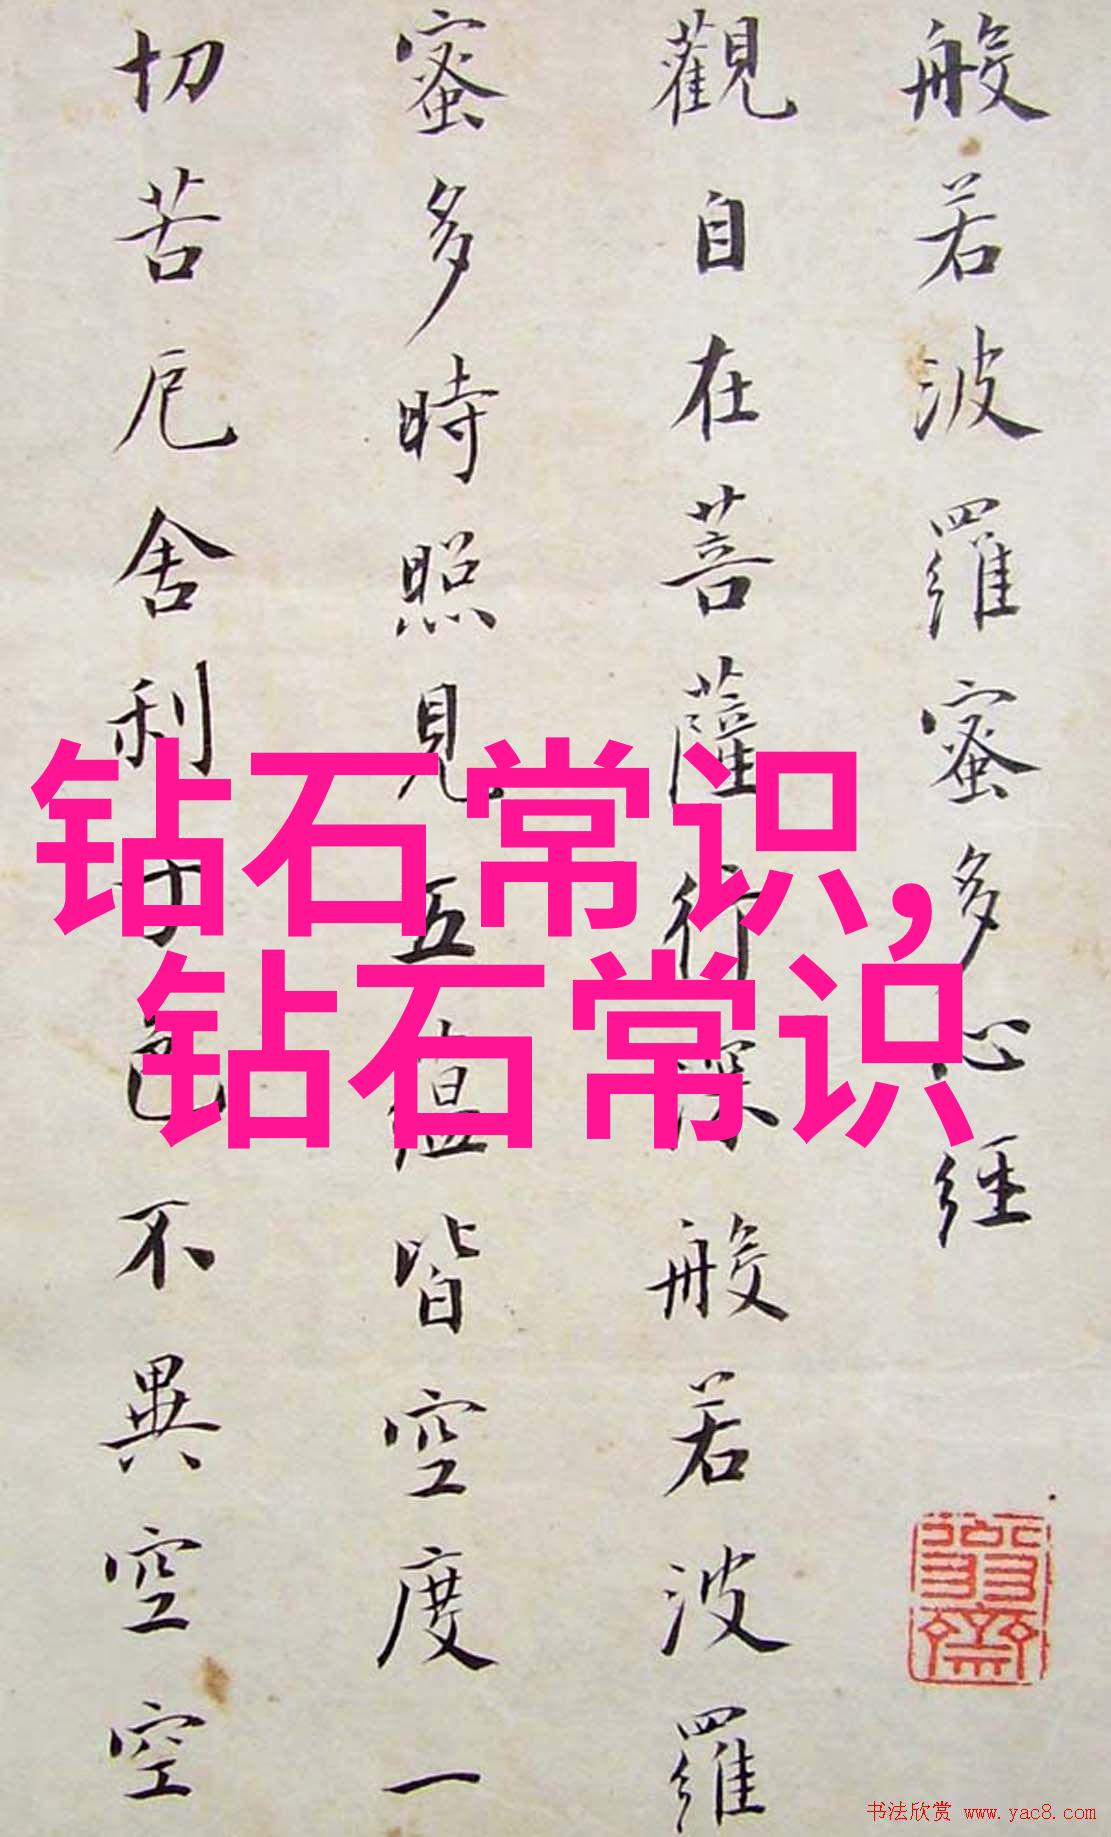 般若波羅蜜多心経
觀自在菩薩行深般若波羅
蜜多時照見五藴皆空度一
切苦厄舍利子色不異空空
钻石常识,
钻石常识
书法欣赏 www.yac8.com